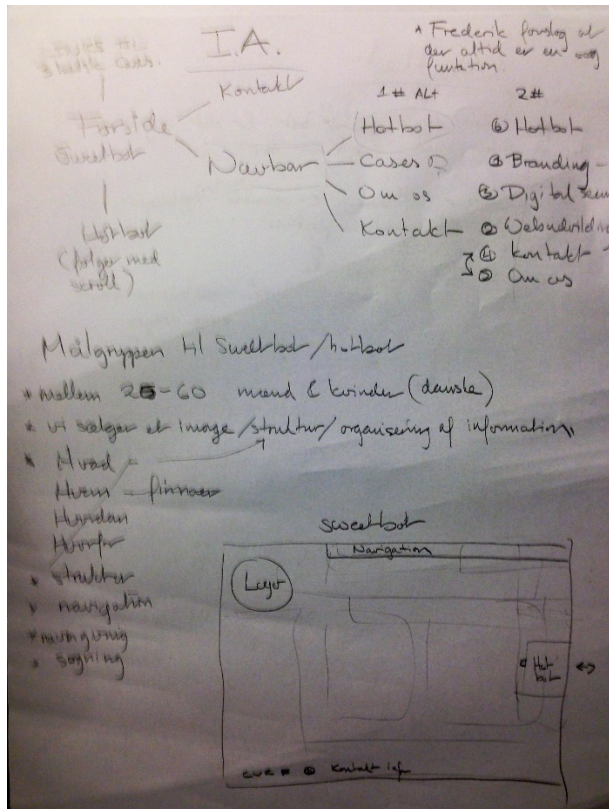 I.A.
* Frederik forslag at
der altid er en
funktion.
Kontakt
1# ALT
2#
Forside
Sweetbot
Navbar
Hotbot
Cases
Om os
Kontakt
⑥ Hotbot
① Branding -
③ Digital
② Webudvikling
④ kontakt
⑤ Om os
Hotbot
(følger med
scroll)
Målgruppen til Sweetbot/hotbot
* mellem 25-60 mænd & kvinder (danske)
* vi sælger et image/struktur/organisering af information
* Hvad -
Hvem - firmaer
Hvordan
Hvorfor
* struktur
* navigation
* navngivning
* søgning
sweetbot
Navigation
Logo
Hot
bot
CVR # Kontakt info